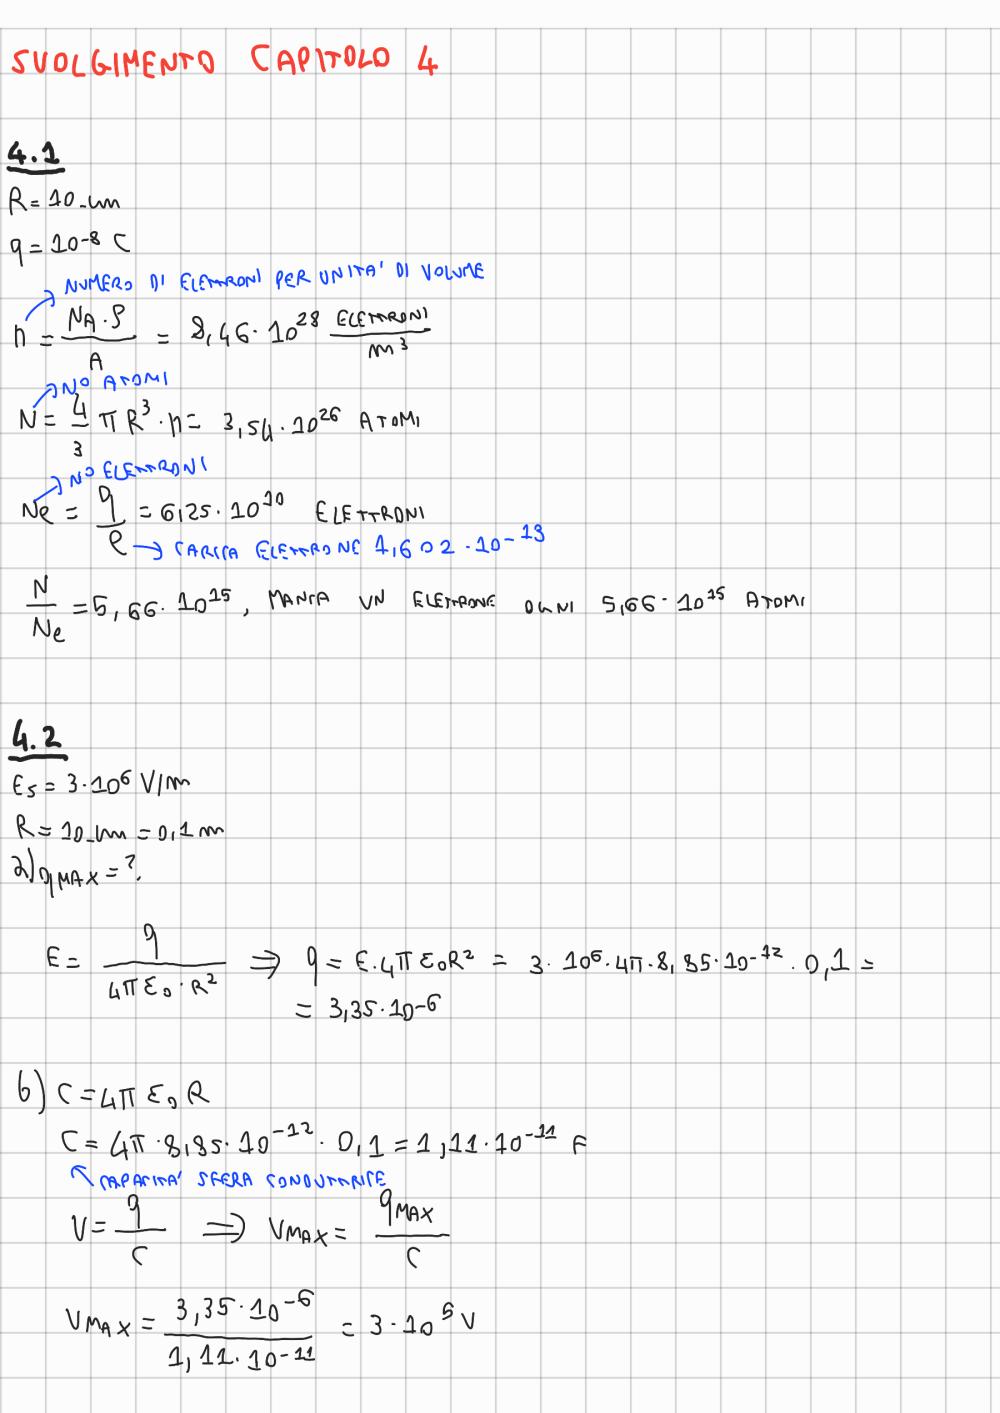 SVOLGIMENTO CAPITOLO 4
4.1
R = 10 cm
q = 10^-8 C
→ NUMERO DI ELETTRONI PER UNITA' DI VOLUME
n = (NA · ρ) / A = 8,46 · 10^28 ELETTRONI / m^3
→ N° ATOMI
N = 4/3 π R^3 · n = 3,54 · 10^26 ATOMI
→ N° ELETTRONI
Ne = q / e = 6,25 · 10^10 ELETTRONI
→ CARICA ELETTRONE 1,602 · 10^-13
N / Ne = 5,66 · 10^15 , MANCA UN ELETTRONE OGNI 5,66 · 10^15 ATOMI
4.2
Es = 3 · 10^6 V/m
R = 10 cm = 0,1 m
a) qMAX = ?
E = q / (4π ε0 · R^2) ⇒ q = E · 4π ε0 R^2 = 3 · 10^6 · 4π · 8,85 · 10^-12 · 0,1 =
= 3,35 · 10^-6
b) C = 4π ε0 R
C = 4π · 8,85 · 10^-12 · 0,1 = 1,11 · 10^-11 F
CAPACITA' SFERA CONDUTTRICE
V = q / C ⇒ VMAX = qMAX / C
VMAX = 3,35 · 10^-6 / 1,11 · 10^-11 = 3 · 10^5 V